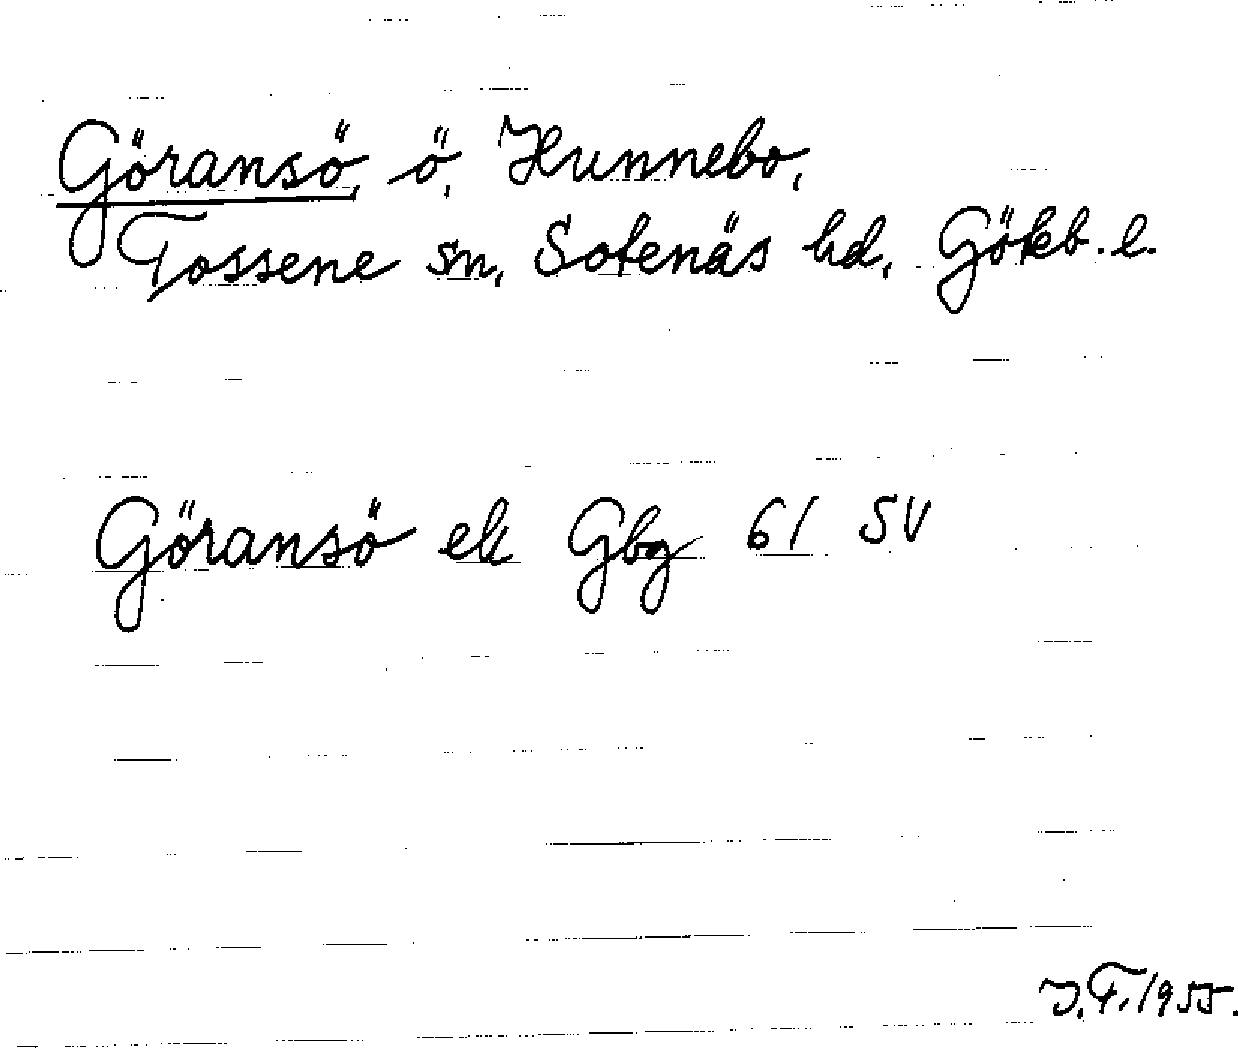 Göransö, ö, Hunnebo,
Tossene sn, Sotenäs hd, Gökb. l.
Göransö ek Gbg 61 SV
J.F. 1955.